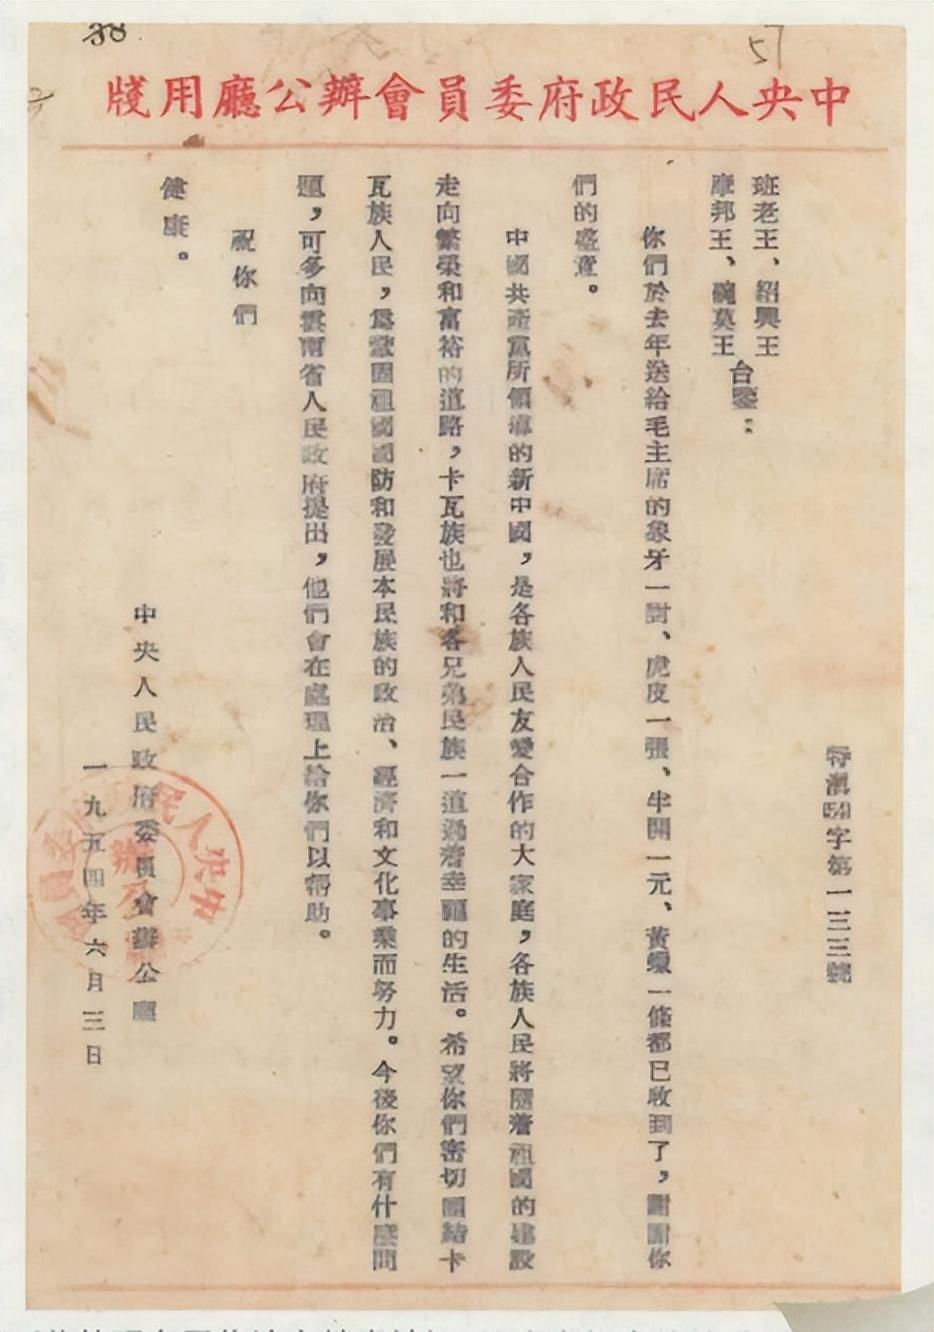 38
57
中央人民政府委員會辦公廳用牋
特滇(54)字第一三三號
班老王、紹興王
摩邦王、碗莫王
台鑒：
你們於去年送給毛主席的象牙一對、虎皮一張、半開一元、黃蠟一條都已收到了，謝謝你
們的盛意。
中國共產黨所領導的新中國，是各族人民友愛合作的大家庭，各族人民將隨着祖國的建設
走向繁榮和富裕的道路，卡瓦族也將和各兄弟民族一道過着幸福的生活。希望你們密切團結卡
瓦族人民，爲鞏固祖國國防和發展本民族的政治、經濟和文化事業而努力。今後你們有什麼問
題，可多向雲南省人民政府提出，他們會在處理上給你們以幫助。
祝你們
健康。
中央人民政府委員會辦公廳
一九五四年六月三日